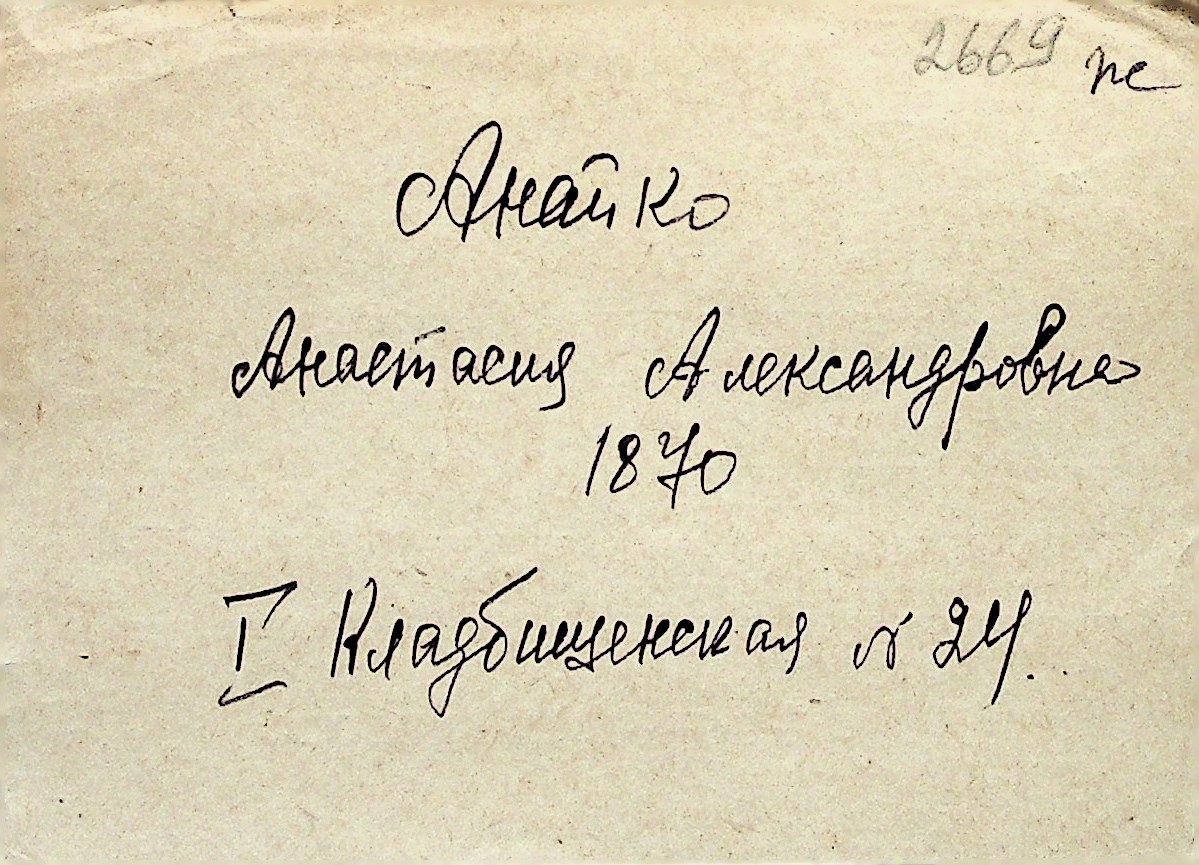 2669 пс
Анайко
Анастасия Александровна
1870
I Кладбищенская № 24.